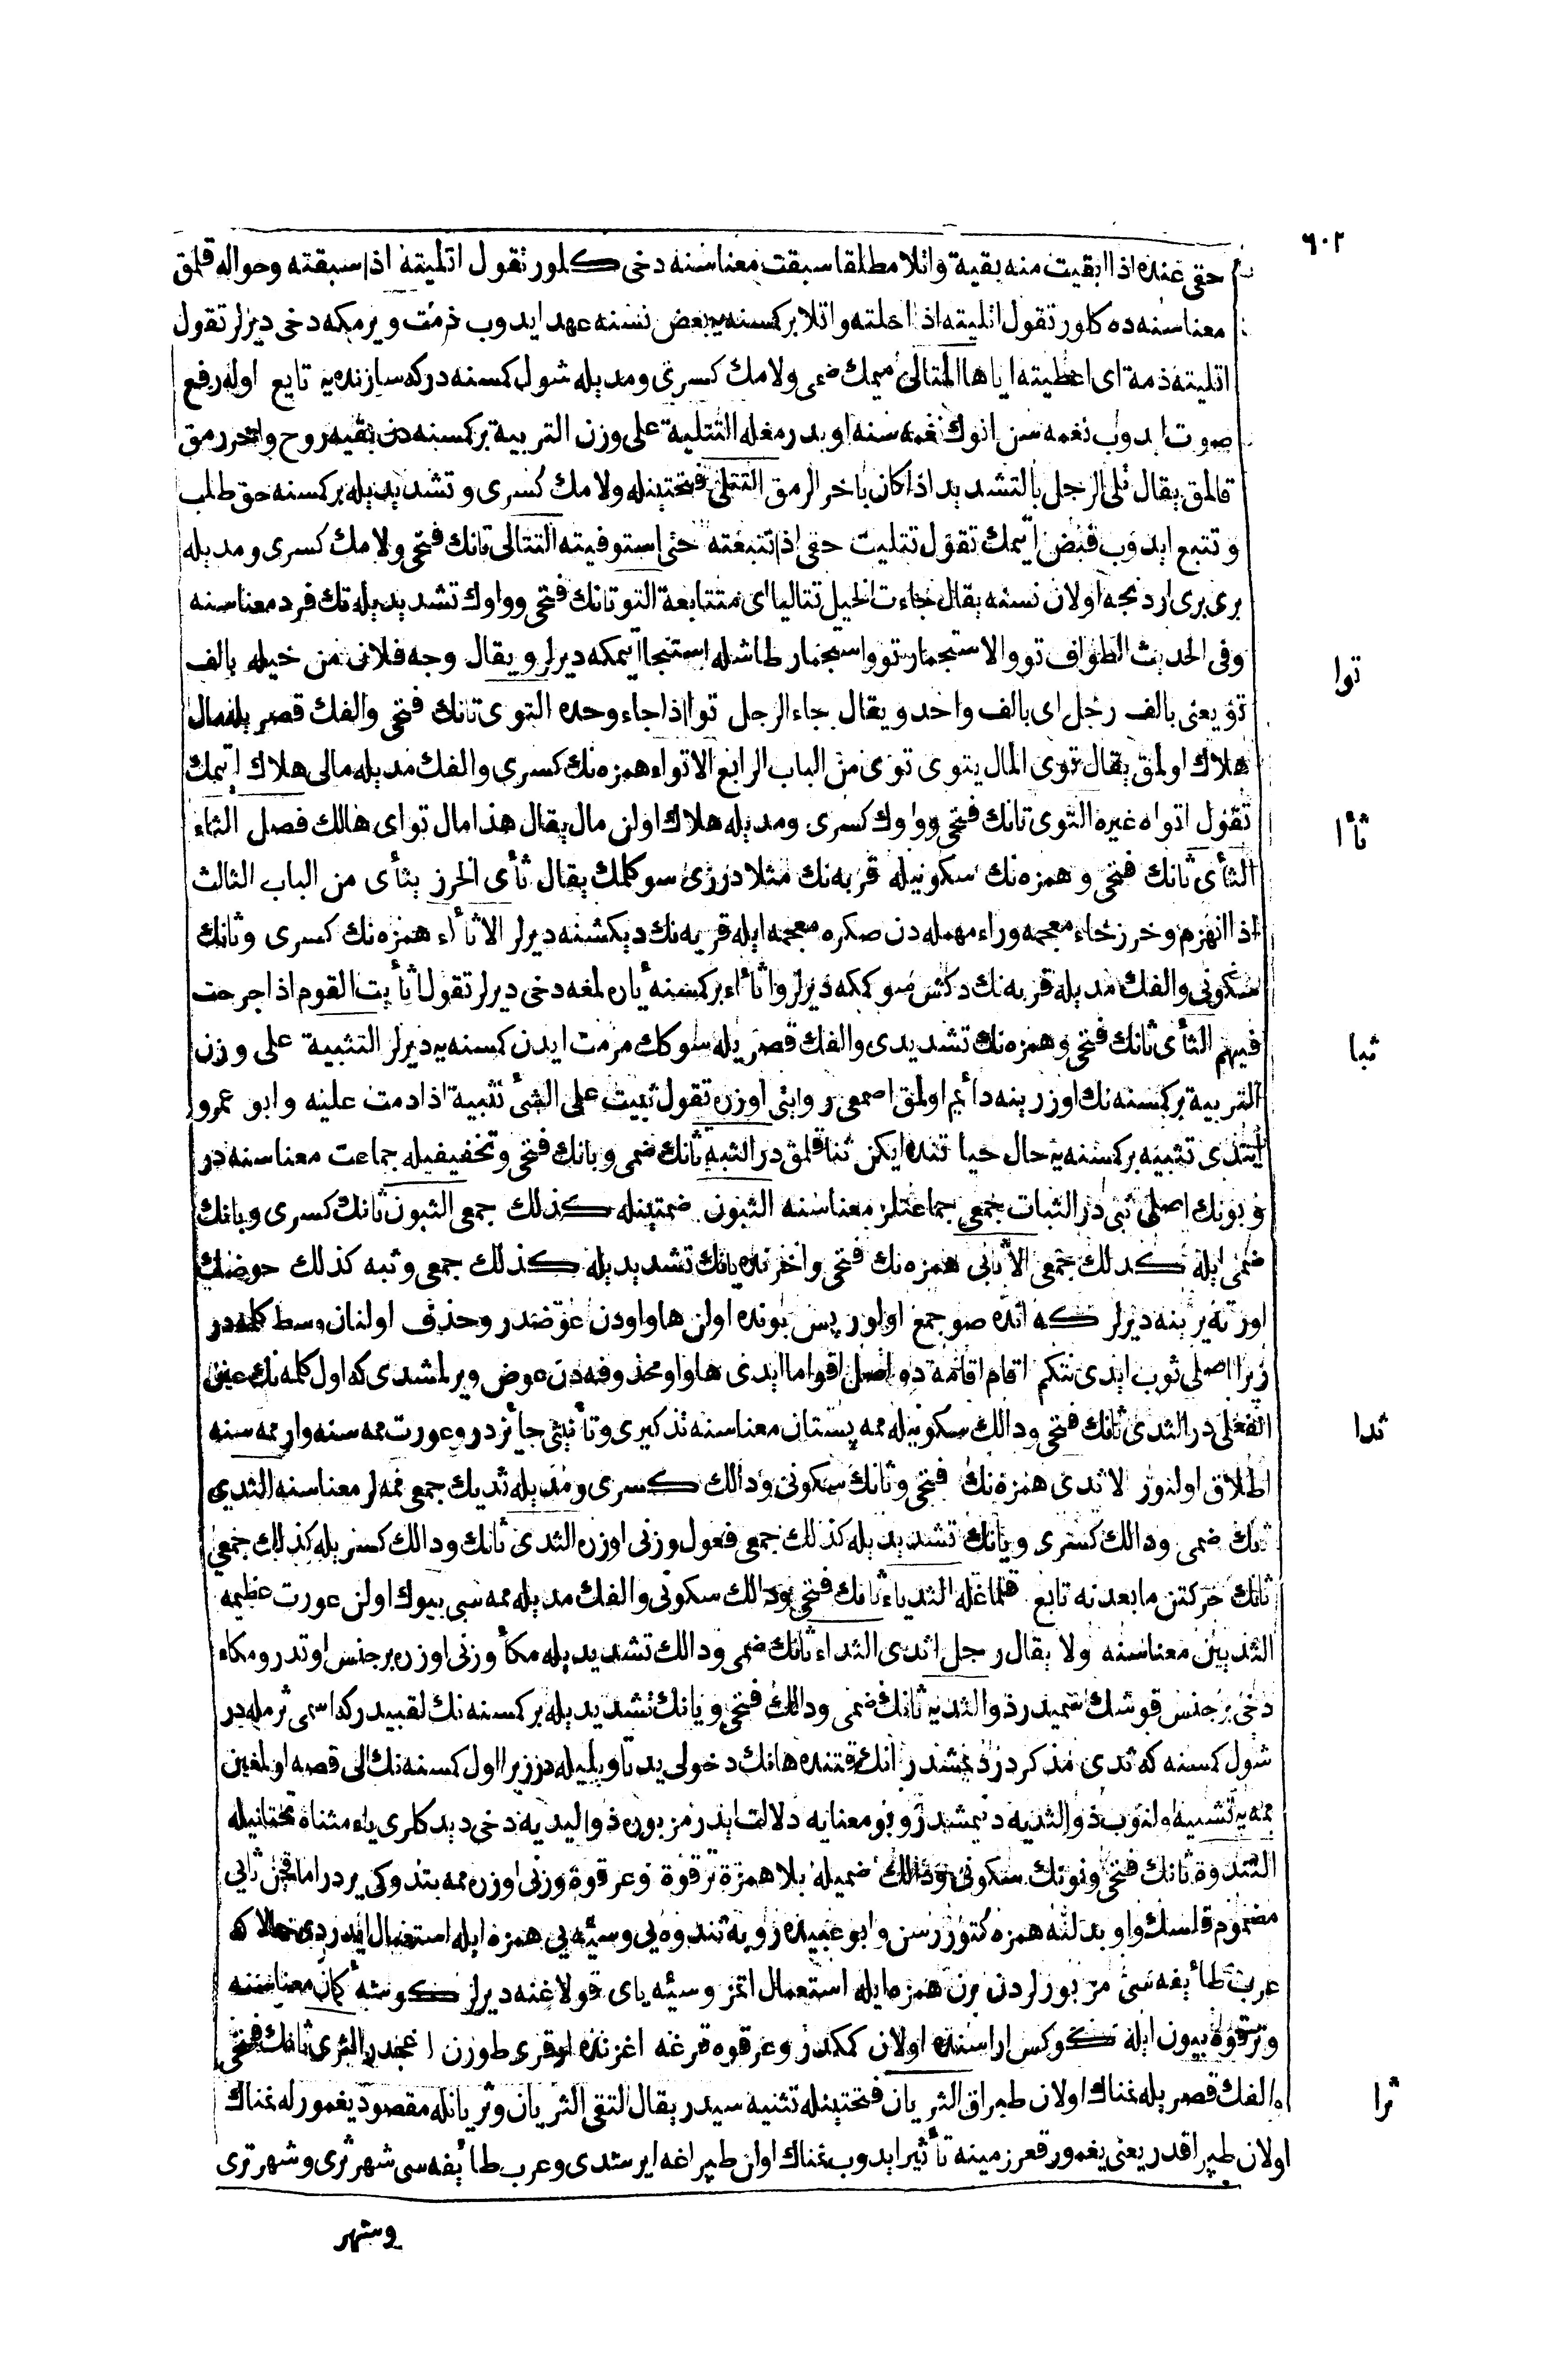 ٦٠٢
حقى عنده اذا ابقيت منه بقية واتلا مطلقا سبقت معناسنه دخى كلور تقول اتليته اذا سبقته وحواله قلمق
معناسنه ده كلور تقول اتليته اذا احلته واتلا بركسنه يه بعض نسنه عهد ايدوب ذمت ويرمكه دخى ديرلر تقول
اتليته ذمة اى اعطيته اياها المتالى ميمك ضمى ولامك كسرى ومديله شول كسنه دركه سازنده يه تابع اوله رفع
صوت ايدوب نغمه سن انوك نغمه سنه اويدرمغله التتلية على وزن التربية بركسنه دن بقيه روح وانجر رمق
قالمق يقال تلى الرجل بالتشديد اذا كان باخر الرمق التتلى فتحتينله ولامك كسرى وتشديديله بركسنه حق طلب
وتتبع ايدوب قبض اتيمك تقول تتليت حقى اذا تتبعته حتى استوفيته التتالى تانك فتحى ولامك كسرى ومديله
برى برى اردنجه اولان نسنه يقال جاءت الخيل تتاليا اى متتابعة التو تانك فتحى وواوك تشديديله تك فرد معناسنه
توا
وفى الحديث الطواف تو والاستجمار تو واستجمار طاشله استنجا اتيمكه ديرلر ويقال وجه فلان من خيله بالف
تو يعنى بالف رجل اى بالف واحد ويقال جاء الرجل توا اذا جاء وحده التوى تانك فتحى والفك قصريله مال
هلاك اولمق يقال توى المال يتوى توى من الباب الرابع الاتواء همزه نك كسرى والفك مديله مالى هلاك اتيمك
تقول اتواه غيره التوى تانك فتحى وواوك كسرى ومديله هلاك اولن مال يقال هذا مال تو اى هالك فصل الثاء
ثأا
الثأى ثانك فتحى وهمزه نك سكونيله قربه نك مثلا درزى سوكلمك يقال ثأى الخرز يثأى من الباب الثالث
اذا انهزم وخرز خاء معجمه وراء مهمله دن صكره معجمه ايله قربه نك ديكشنه ديرلر الاثأاء همزه نك كسرى وثانك
سكونى والفك مديله قربه نك دكش سوككه ديرلر واثأاء بركسنه ياره لمغه دخى ديرلر تقول اثأيت القوم اذا جرحت
فيهم الثأى ثانك فتحى وهمزه نك تشديدى والفك قصريله سوكك مرمت ايدن كسنه يه ديرلر التثبية على وزن
ثبا
التربية بركسنه نك اوزرينه دائم اولمق اصمعى روايتى اوزره تقول ثبيت على الشئ تثبية اذا دمت عليه وابو عمرو
ايتدى تثبيه بركسنه يه حال حياتنده ايكن ثنا قلمق در الثبة ثانك ضمى وبانك فتحى وتخفيفيله جماعت معناسنه در
وبونك اصلى ثبى در الثبات جمعى جماعتلر معناسنه الثبون ضمتينله كذلك جمعى الثبون ثانك كسرى وبانك
ضمى ايله كذلك جمعى الاثابى همزه نك فتحى واخرنده يانك تشديديله كذلك جمعى وثبه كذلك حوضك
اورته يرينه ديرلر كه انده صو جمع اولور پس بونده اولن ها واودن عوضدر وحذف اولنان وسط كلمه در
زيرا اصلى ثوب ايدى نتكم اقام اقامة ده اصل اقواما ايدى ها واو محذوفه دن عوض ويرلمشدى كه اول كلمه نك عين
الفعلى در الثدى ثانك فتحى ودالك سكونيله ممه پستان معناسنه تذكيرى وتأنيثى جائزدر وعورت ممه سنه وار ممه سنه
ثدا
اطلاق اولنور الاثدى همزه نك فتحى وثانك سكونى ودالك كسرى ومديله ثديك جمعى ممه لر معناسنه الثدى
ثانك ضمى ودالك كسرى ويانك تشديديله كذلك جمعى فعول وزنى اوزره الثدى ثانك ودالك كسريله كذلك جمعى
ثانك حركتن مابعدنه تابع قلمغله الثدياء ثانك فتحى ودالك سكونى والفك مديله ممه سى بيوك اولن عورت عظيمه
الثديين معناسنه ولا يقال رجل اثدى الثداء ثانك ضمى ودالك تشديديله مكأ وزنى اوزره برجنس اوتدر ومكاء
دخى برجنس قوشك اسميدر ذو الثديه ثانك ضمى ودالك فتحى ويانك تشديديله بركسنه نك لقبيدركه اسمى ثرمله در
شول كسنه كه ثدى مذكردر ديمشدر انك قتنده هانك دخولى يد تاويليله در زيرا اول كسنه نك الى قصه اولمغين
ممه يه تشبيه اولنوب ذو الثديه ديمشدر وبو معنايه دلالت ايدر مزبوره ذو اليديه دخى ديدكلرى ياء مثناة تحتانيله
الثندوة ثانك فتحى ونونك سكونى ودالك ضميله بلا همزة ترقوة وعرقوة وزنى اوزره ممه بتدوكى يردر اما قچن ثايى
مضموم قلسك واو بدلنه همزه كتورر سن وابو عبيده رؤبه ثندوه يى وسيّه يى همزه ايله استعمال ايدردى حالا كه
عرب طائفه سى مزبورلردن برن همزه ايله استعمال اتمز وسيّه ياى قولاغنه ديرلر كوشه كمان معناسنه
وترقوه بيون ايله كوكس اراسنده اولان ككدر وعرقوه قرغه اغزنده اوقرى طورن اغجدر الثرى ثانك فتحى
والفك قصريله نمناك اولان طپراق الثريان فتحتينله تثنيه سيدر يقال التقى الثريان وثريانله مقصود يغمورله نمناك
ثرا
اولان طپراقدر يعنى يغمور قعر زمينه تأثير ايدوب نمناك اولن طپراغه ايرشدى وعرب طائفه سى شهر ثرى وشهر ترى
وشهر